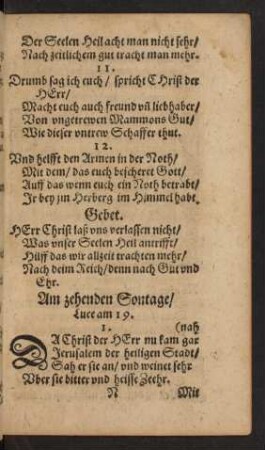 Der Seelen Heil acht man nicht sehr/
Nach zeitlichem gut tracht man mehr.
11.
Drumb sag ich euch/ spricht Christ der
HErr/
Macht euch auch freund vñ liebhaber/
Von vngetrewen Mammons Gut/
Wie dieser vntrew Schaffer thut.
12.
Vnd helfft den Armen in der Noth/
Mit dem/ das euch bescheret Gott/
Auff das wenn euch ein Noth betrabt/
Ir bey jm Herberg im Himmel habt.
Gebet.
HErr Christ laß vns verlassen nicht/
Was vnser Seelen Heil antrifft/
Hilff das wir allzeit trachten mehr/
Nach deim Reich/ denn nach Gut vnd
Ehr.
Am zehenden Sontage/
Luce am 19.
1. (nah
DA Christ der HErr nu kam gar
Jerusalem der heiligen Stadt/
Sah er sie an/ vnd weinet sehr
Vber sie bitter vnd heisse Zeehr.
N Mit